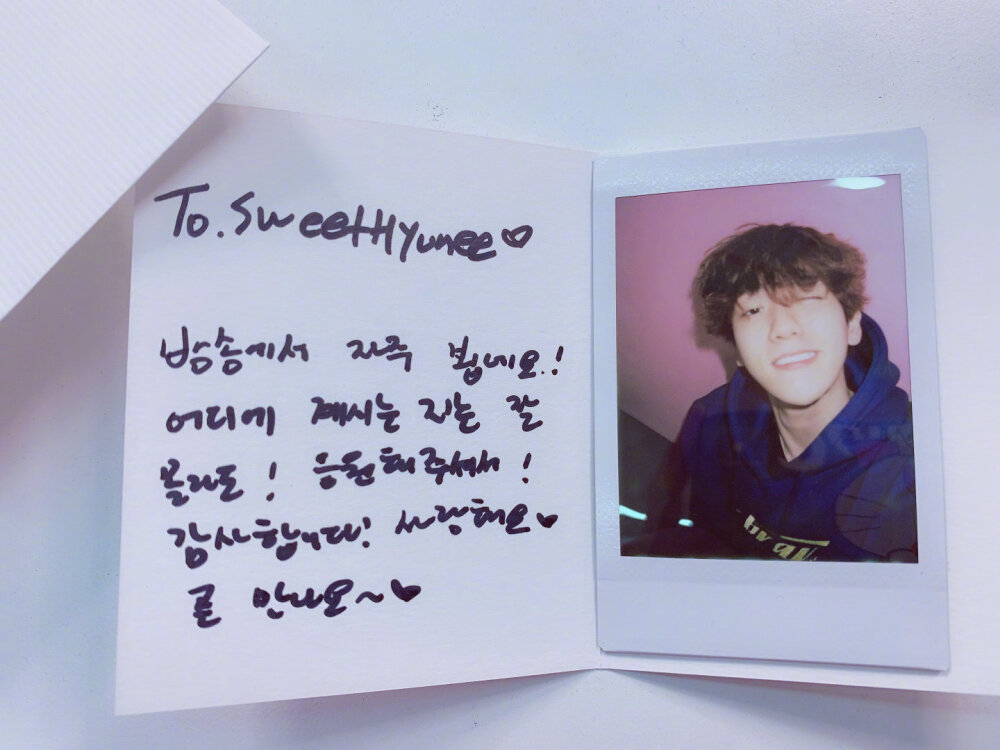 To. SweetHyunee♡
방송에서 자주 뵙네요.!
어디에 계시는 지는 잘
몰라도! 응원해주셔서!
감사합니다! 사랑해요♥
곧 만나요~♥